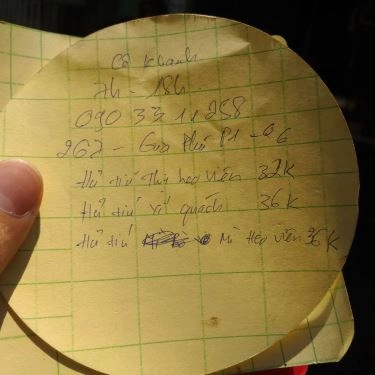 Cô Khanh
7h - 18h
090 33 11 258
262 - Gia Phú P1 - Q6
Hủ tiếu thịt heo viên 32K
Hủ tiếu vỉ quách 36K
Hủ tiếu Mì heo viên 36K